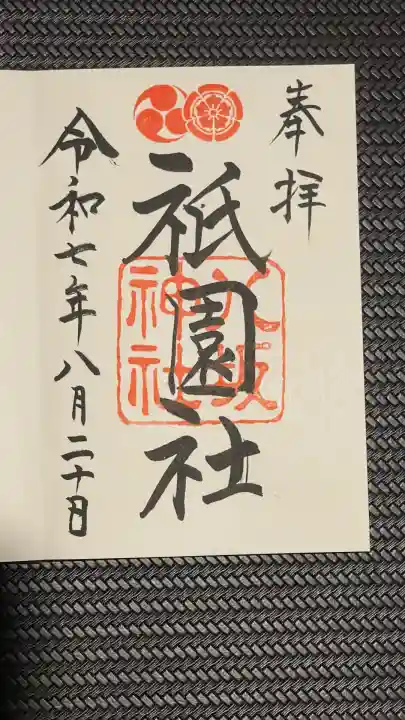 奉拝
祇園社
八坂
神社
令和七年八月二十日